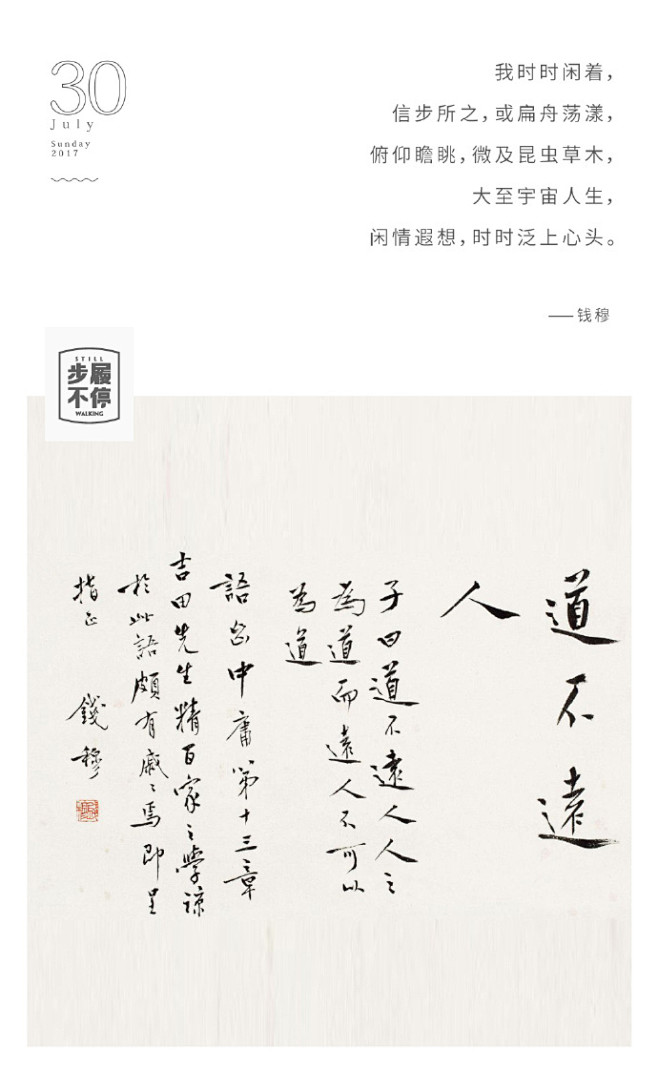 30
July
Sunday
2017
我时时闲着，
信步所之，或扁舟荡漾，
俯仰瞻眺，微及昆虫草木，
大至宇宙人生，
闲情遐想，时时泛上心头。
——钱穆
STILL
步履
不停
WALKING
道不遠
人
子曰道不遠人人之
為道而遠人不可以
為道
語出中庸第十三章
吉田先生精百家之學諒
於此語頗有戚戚焉即呈
指正
錢穆